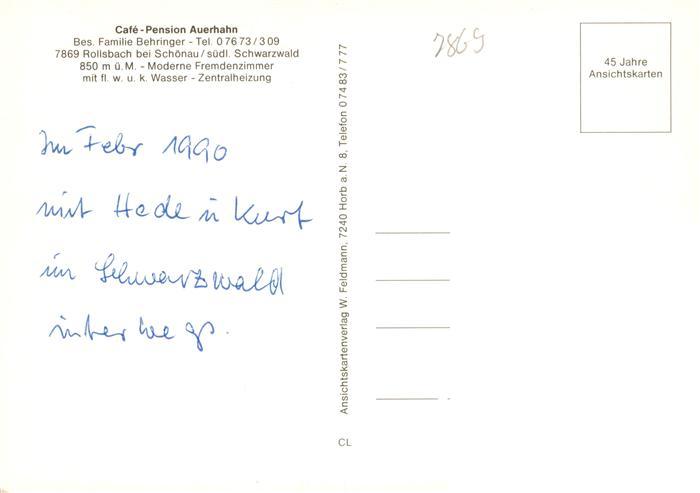 Café - Pension Auerhahn
Bes. Familie Behringer - Tel. 0 76 73 / 3 09
7869 Rollsbach bei Schönau / südl. Schwarzwald
850 m ü. M. - Moderne Fremdenzimmer
mit fl. w. u. k. Wasser - Zentralheizung
Im Febr 1990
mit Hede u Kurt
im Schwarzwald
unterwegs.
Ansichtskartenverlag W. Feldmann, 7240 Horb a. N. 8, Telefon 0 74 83 / 7 77
CL
7869
45 Jahre
Ansichtskarten